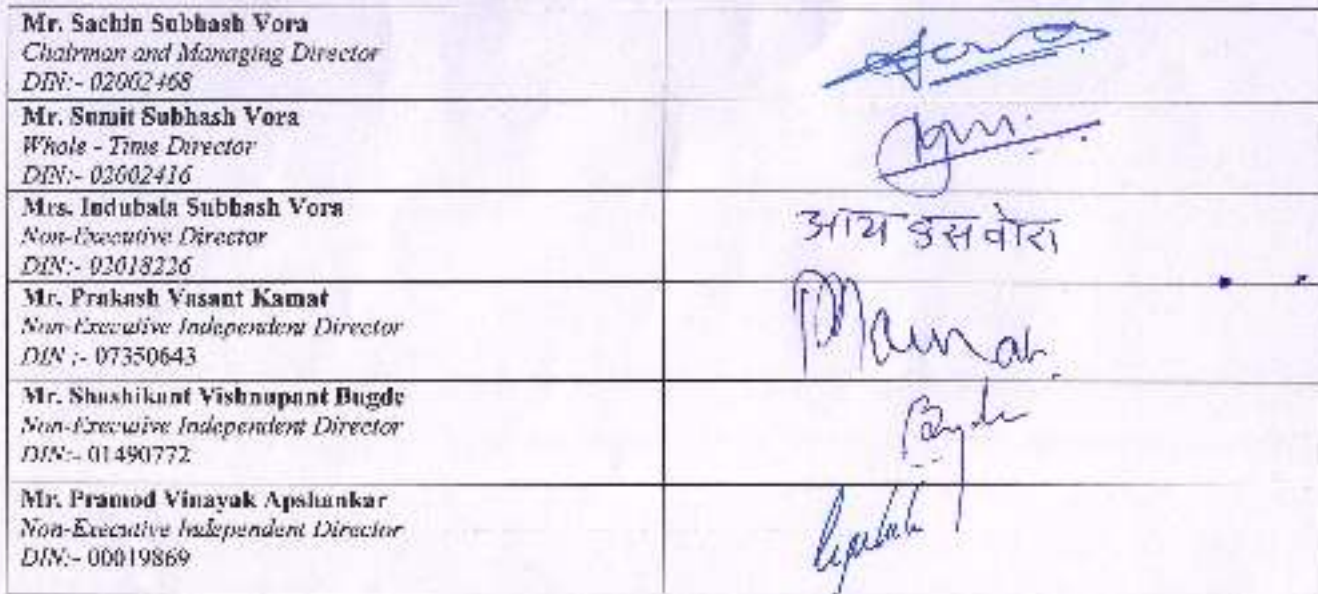 Mr. Sachin Subhash Vora
Chairman and Managing Director
DIN:- 02002468
Mr. Sumit Subhash Vora
Whole - Time Director
DIN:- 02002416
Mrs. Indubala Subhash Vora
Non-Executive Director
DIN:- 02018226
आय एस वोरा
Mr. Prakash Vasant Kamat
Non-Executive Independent Director
DIN :- 07350643
Mr. Shashikant Vishnupant Bugde
Non-Executive Independent Director
DIN:- 01490772
Mr. Pramod Vinayak Apshankar
Non-Executive Independent Director
DIN:- 00019869